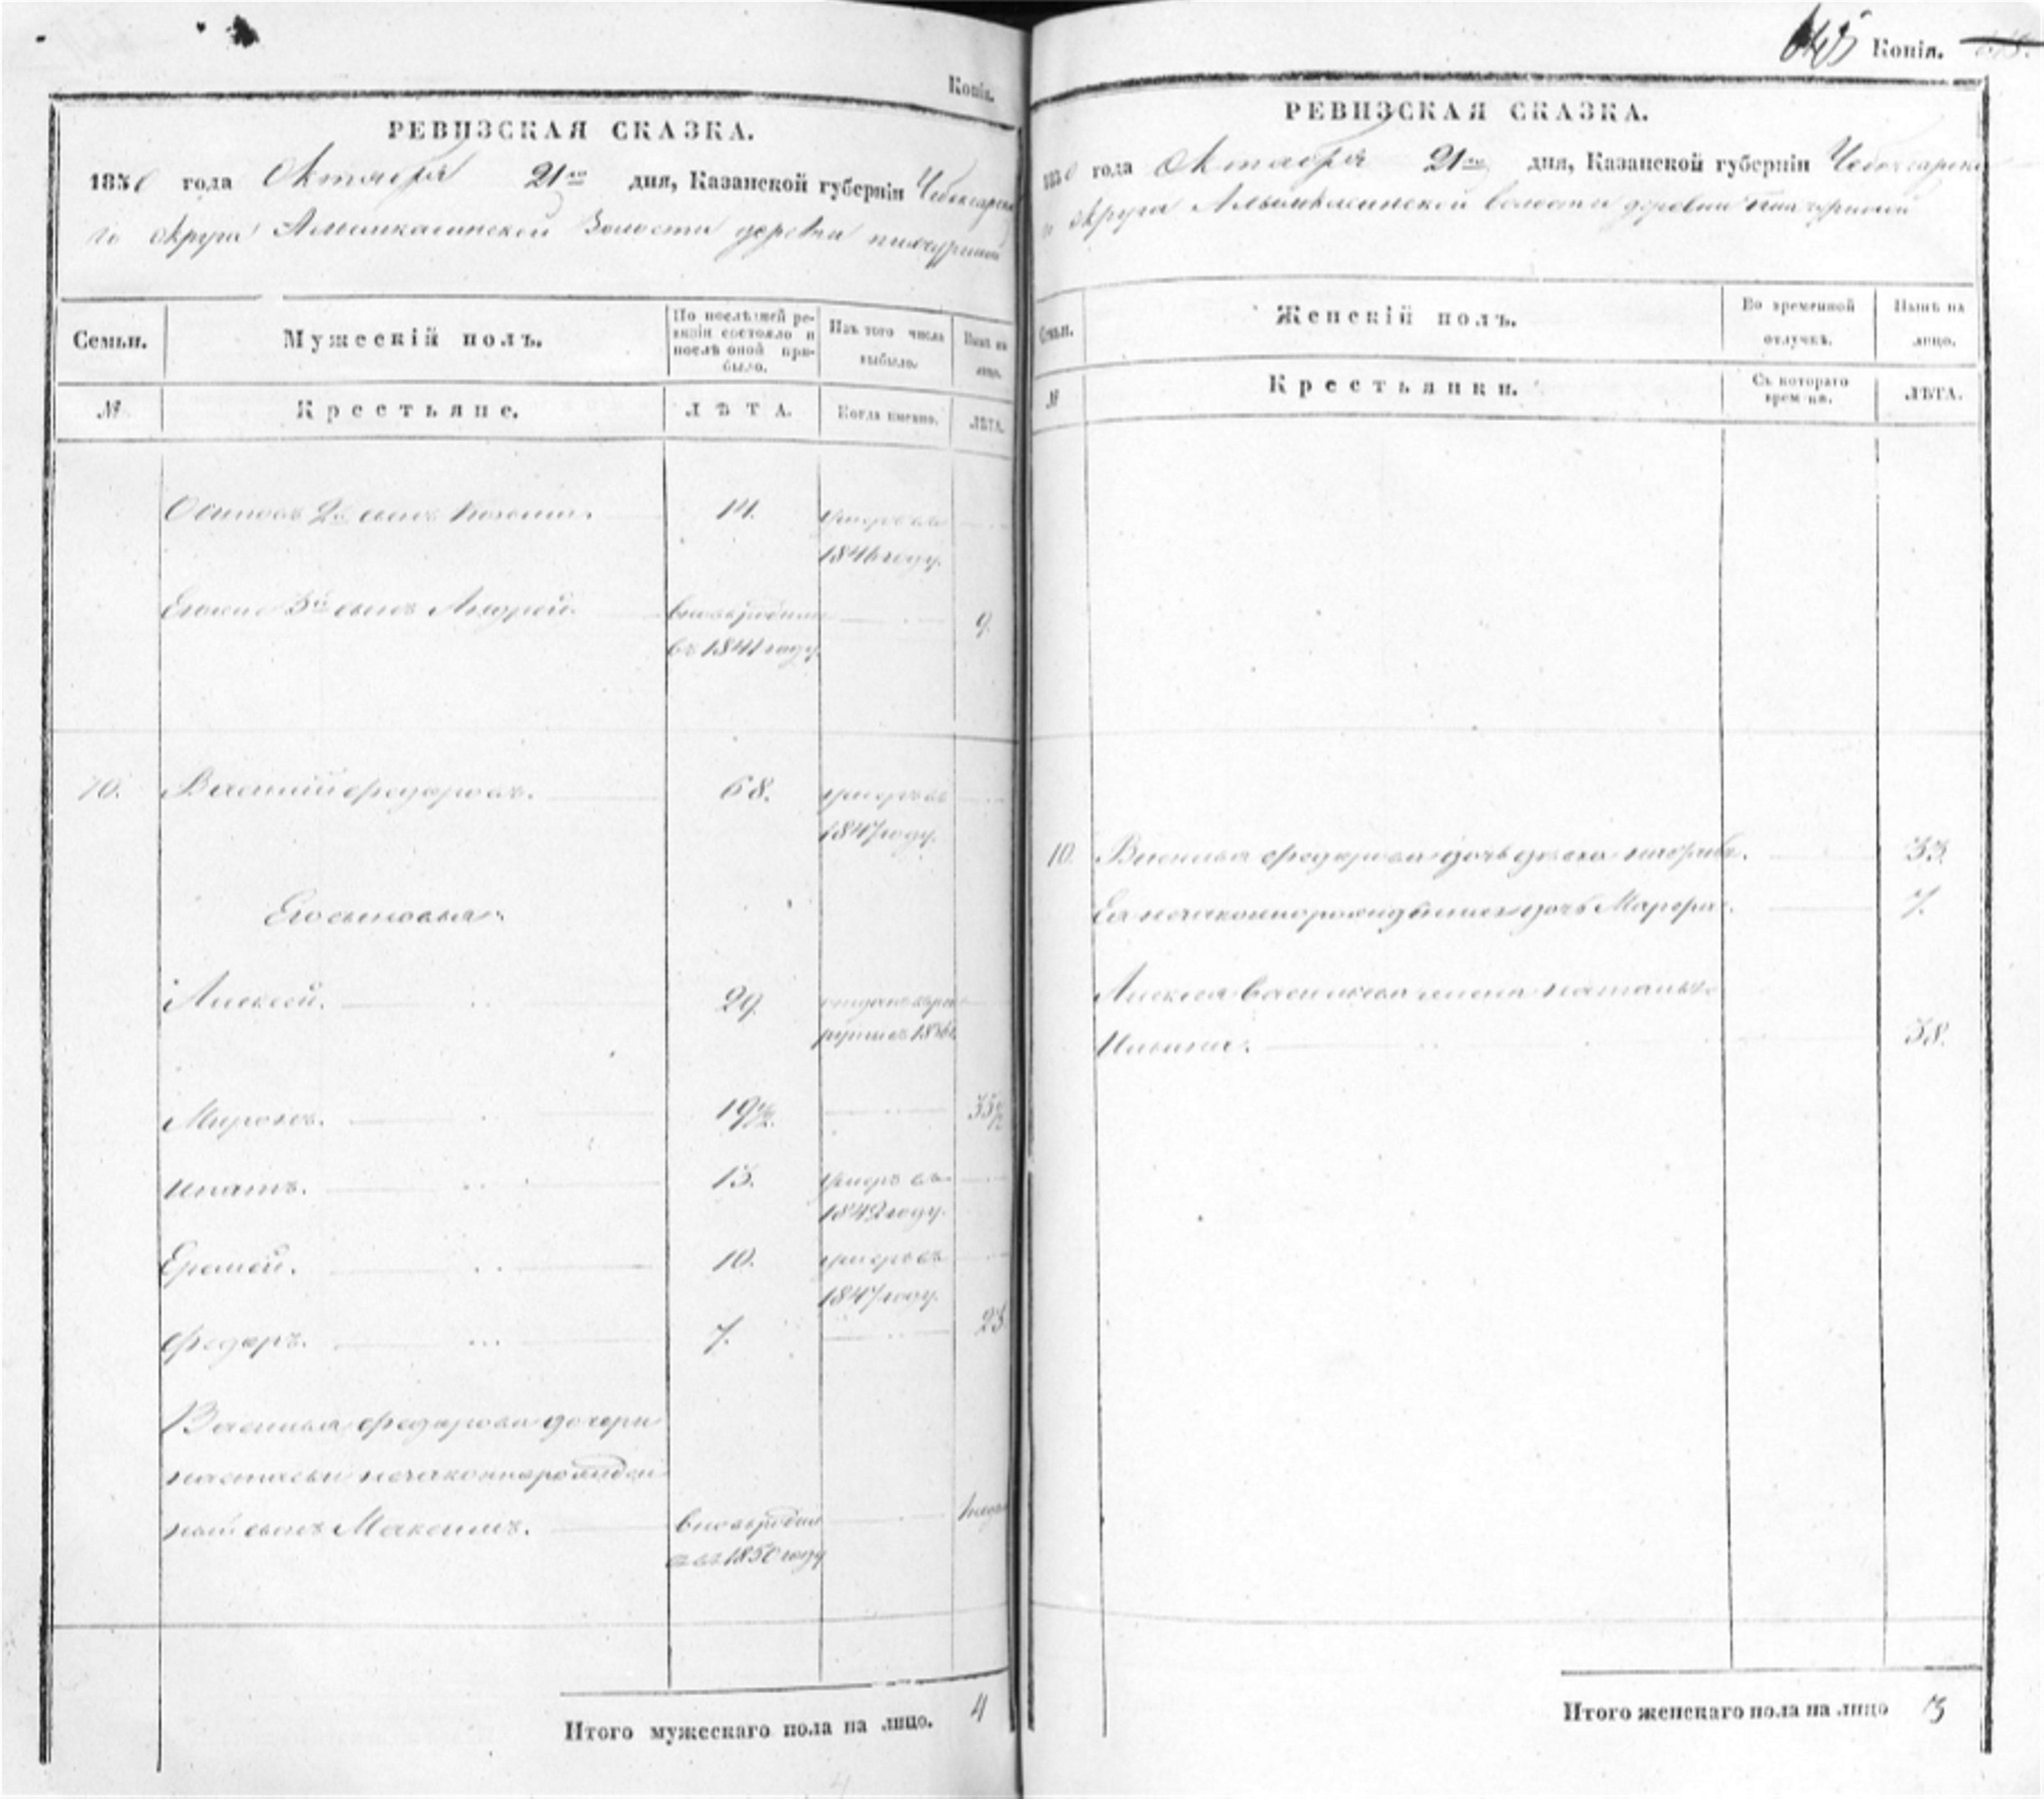 Копія.
РЕВИЗСКАЯ СКАЗКА.
1850 года Октября 21го дня, Казанской губерніи Чебоксарска
го округа Алымкасинской Волости деревни
Семьи.
Мужескій полъ.
По послѣдней ре-
визіи состояло и
послѣ оной при-
было.
Изъ того числа
выбыло.
Нынѣ на
лицо.
№
Крестьяне.
ЛѢТА.
Когда именно.
ЛѢТА.
Осиповъ 2й сынъ 14. умеръ въ
1846 году.
3й сынъ Андрей. вновь рожден
въ 1841 году. 9.
10. Василій Федоровъ. 68. умеръ въ
1847 году.
Его сыновья:
Алексей. 29. отданъ въ рек
руты въ
Миронъ. 19
Ипатъ. 13. умеръ въ
1842 году.
Ермей. 10. умеръ въ
1847 году.
Федоръ. 7. 23
Василья Федорова дочери
настасьи незаконнорожден
ный сынъ Максимъ. вновь рожден
въ 1850 году
Итого мужескаго пола на лицо. 4
645 Копія.
РЕВИЗСКАЯ СКАЗКА.
1850 года Октября 21го дня, Казанской губерніи Чебоксарска
го округа Алымкасинской волости деревни
Семьи.
Женскій полъ.
Во временной
отлучкѣ.
Нынѣ на
лицо.
№
Крестьянки.
Съ котораго
времени.
ЛѢТА.
10. Василья Федорова дочь 33.
Ея незаконнорожденная дочь Марфа. 7.
Алексея Васильева жена наталья
Ильина. 38.
Итого женскаго пола на лицо 3